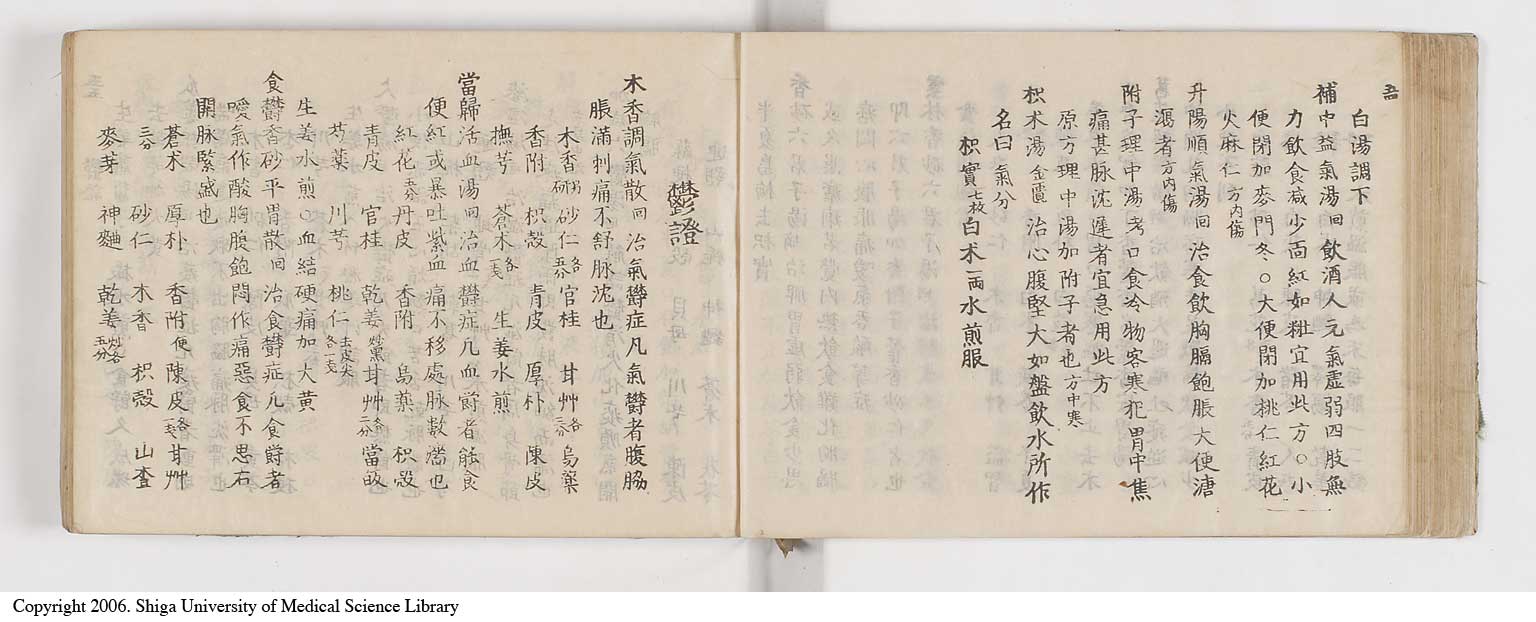 白湯調下
補中益氣湯回飲酒人元氣虛弱四肢無
力飲食減少面紅如粧宜用此方○小
便閉加麥門冬○大便閉加桃仁紅花
火麻仁方內傷
升陽順氣湯回治食飲胸膈飽脹大便溏
瀉者方內傷
附子理中湯考口食冷物客寒犯胃中焦
痛甚脈沈遲者宜急用此方
原方理中湯加附子者也方中寒
枳朮湯金匱治心腹堅大如盤飲水所作
名曰氣分
枳實七枚白术一兩水煎服
欝證
木香調氣散回治氣欝症凡氣欝者腹脇
脹滿刺痛不舒脈沈也
木香砂仁各五分官桂甘艸各三分烏藥
香附枳殼青皮厚朴陳皮
撫芎蒼木各一戈生姜水煎
當歸活血湯回治血欝症凡血欝者能食
便紅或暴吐紫血痛不移處脉數濇也
青皮官桂乾姜炒黑甘艸各二分當皈
紅花丹皮香附烏藥枳殼
芍藥川芎桃仁去皮尖各一戈
生姜水煎○血結硬痛加大黄
食欝香砂平胃散回治食欝症凡食欝者
噯氣作酸胸腹飽悶作痛惡食不思右
關脉緊盛也
蒼术厚朴香附便陳皮各一戈甘艸
三分砂仁木香枳殼山查
麥芽神麯乾姜炒各五分
Copyright 2006. Shiga University of Medical Science Library